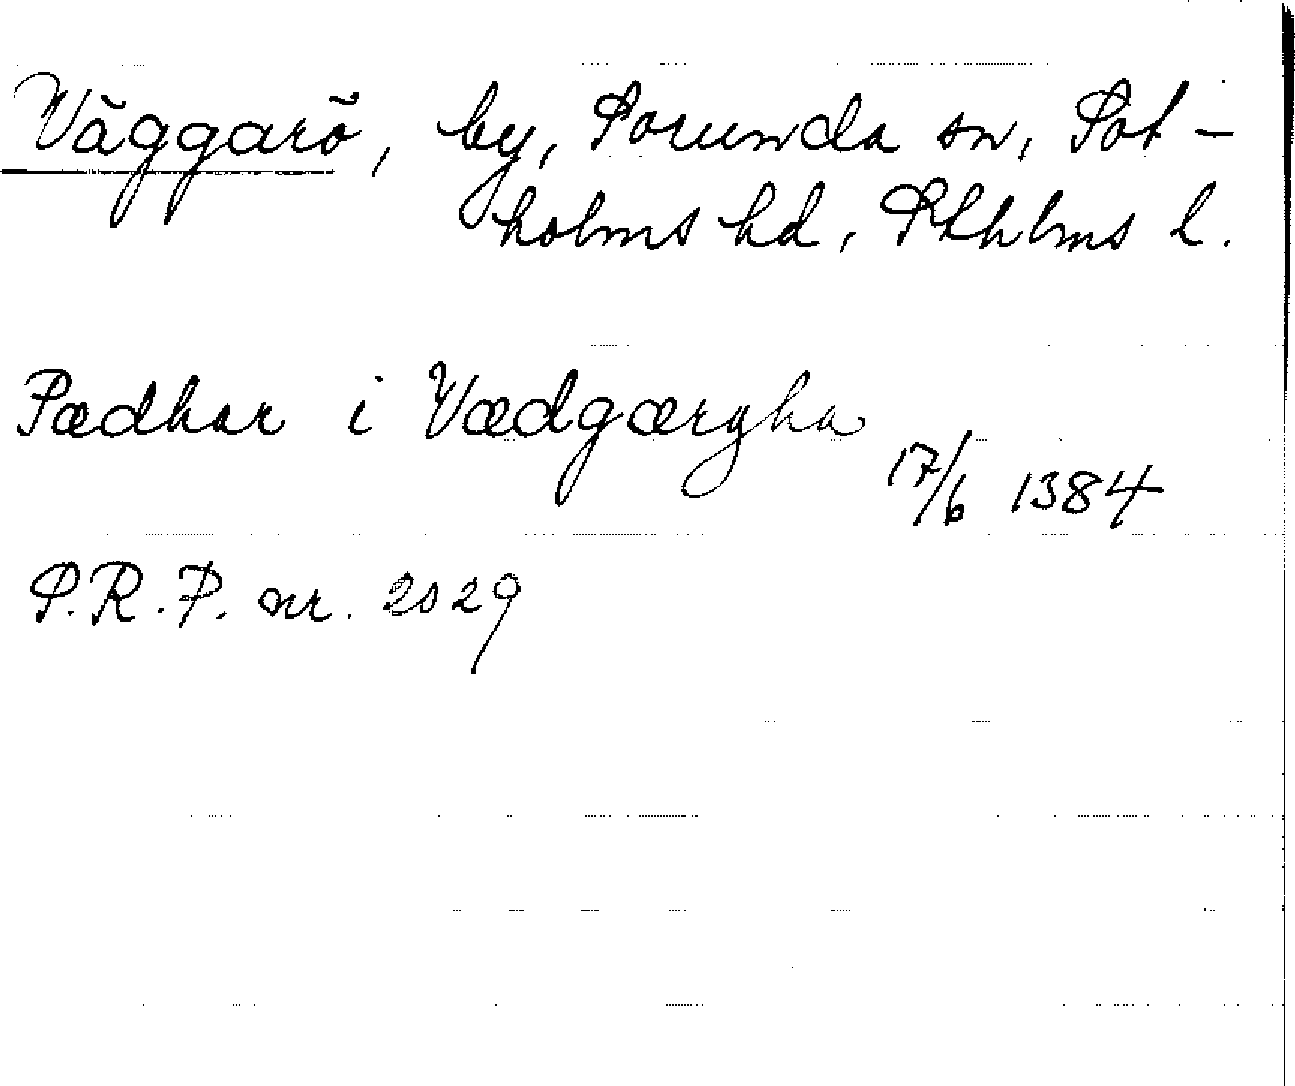 Väggarö, by, Sorunda sn, Sot-
holms hd, Sthlms l.
Pædhar i Vædgærgha
17/6 1384
S.R.P. nr. 2029